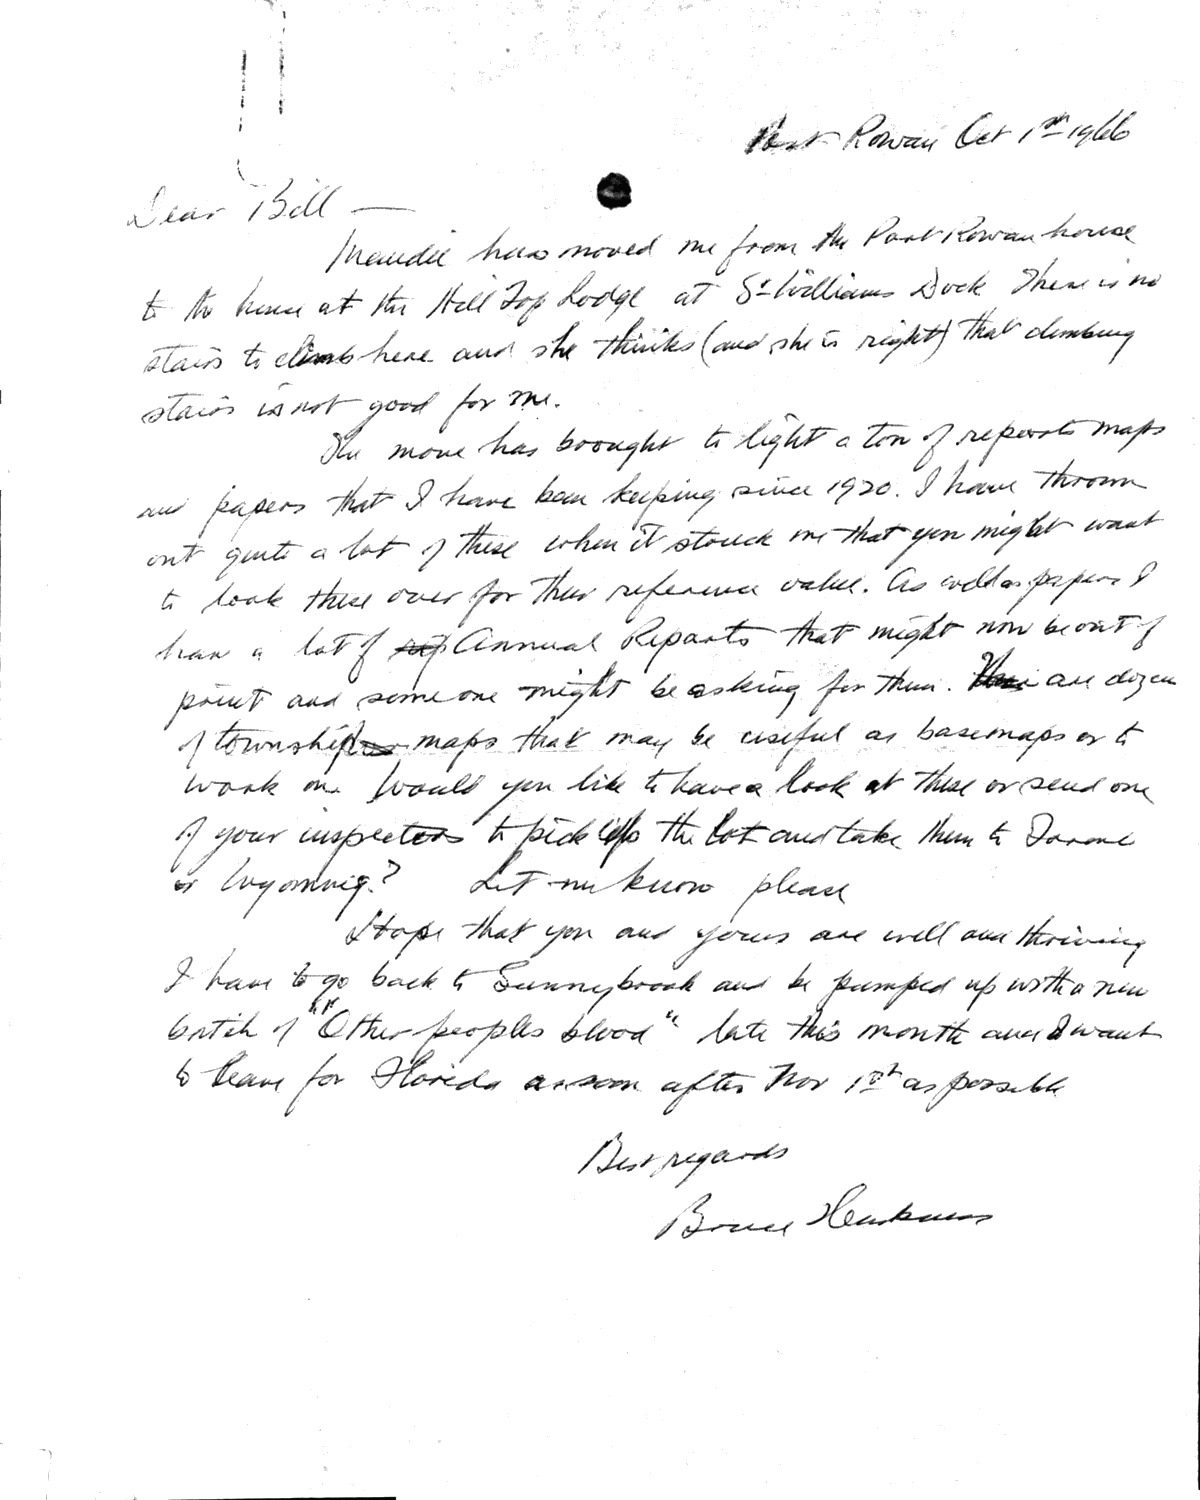 Port Rowan Oct 1st 1966
Dear Bill —
Maudie has moved me from the Port Rowan house
to the house at the Hill Top Lodge at St Williams Dock There is no
stairs to climb here and she thinks (and she is right) that climbing
stairs is not good for me.
The move has brought to light a ton of reports maps
and papers that I have been keeping since 1920. I have thrown
out quite a lot of these when it struck me that you might want
to look these over for their reference value. As well as papers I
have a lot of rep Annual Reports that might now be out of
print and someone might be asking for them. There are dozen
of township maps that may be useful as base maps or to
work on. Would you like to have a look at these or send one
of your inspectors to pick up the lot and take them to
or Wyoming? Let me know please
I hope that you and yours are well and thriving
I have to go back to Sunnybrook and be pumped up with a new
batch of "Other peoples blood" late this month and I want
to leave for Florida as soon after Nov 1st as possible
Best regards
Bruce